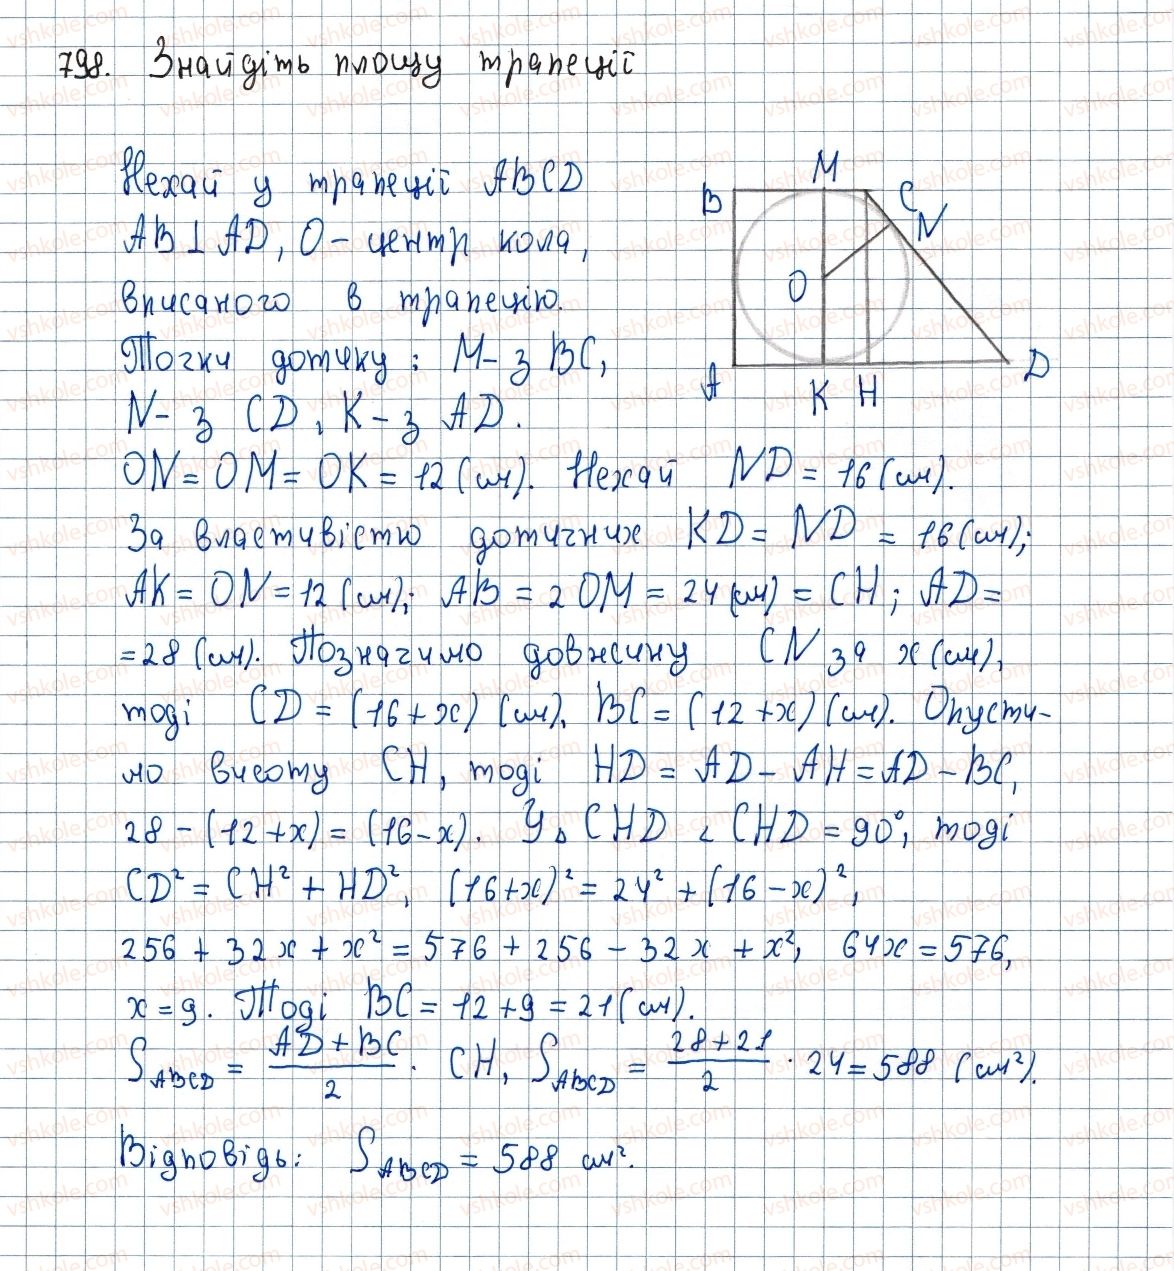 798. Знайдіть площу трапеції
Нехай у трапеції ABCD
AB⊥AD, O – центр кола,
вписаного в трапецію.
Точки дотику: M – з BC,
N – з CD, K – з AD.
B M C N O A K H D
ON = OM = OK = 12 (см). Нехай ND = 16 (см).
За властивістю дотичних KD = ND = 16 (см);
AK = ON = 12 (см); AB = 2OM = 24 (см) = CH; AD =
= 28 (см). Позначимо довжину CN за x (см),
тоді CD = (16 + x) (см), BC = (12 + x) (см). Опусти-
мо висоту CH, тоді HD = AD – AH = AD – BC,
28 – (12 + x) = (16 – x). У ∆ CHD ∠ CHD = 90°, тоді
CD² = CH² + HD², (16 + x)² = 24² + (16 – x)²,
256 + 32x + x² = 576 + 256 – 32x + x², 64x = 576,
x = 9. Тоді BC = 12 + 9 = 21 (см).
S_ABCD = (AD + BC)/2 · CH, S_ABCD = (28 + 21)/2 · 24 = 588 (см²).
Відповідь: S_ABCD = 588 см².
vshkole.com